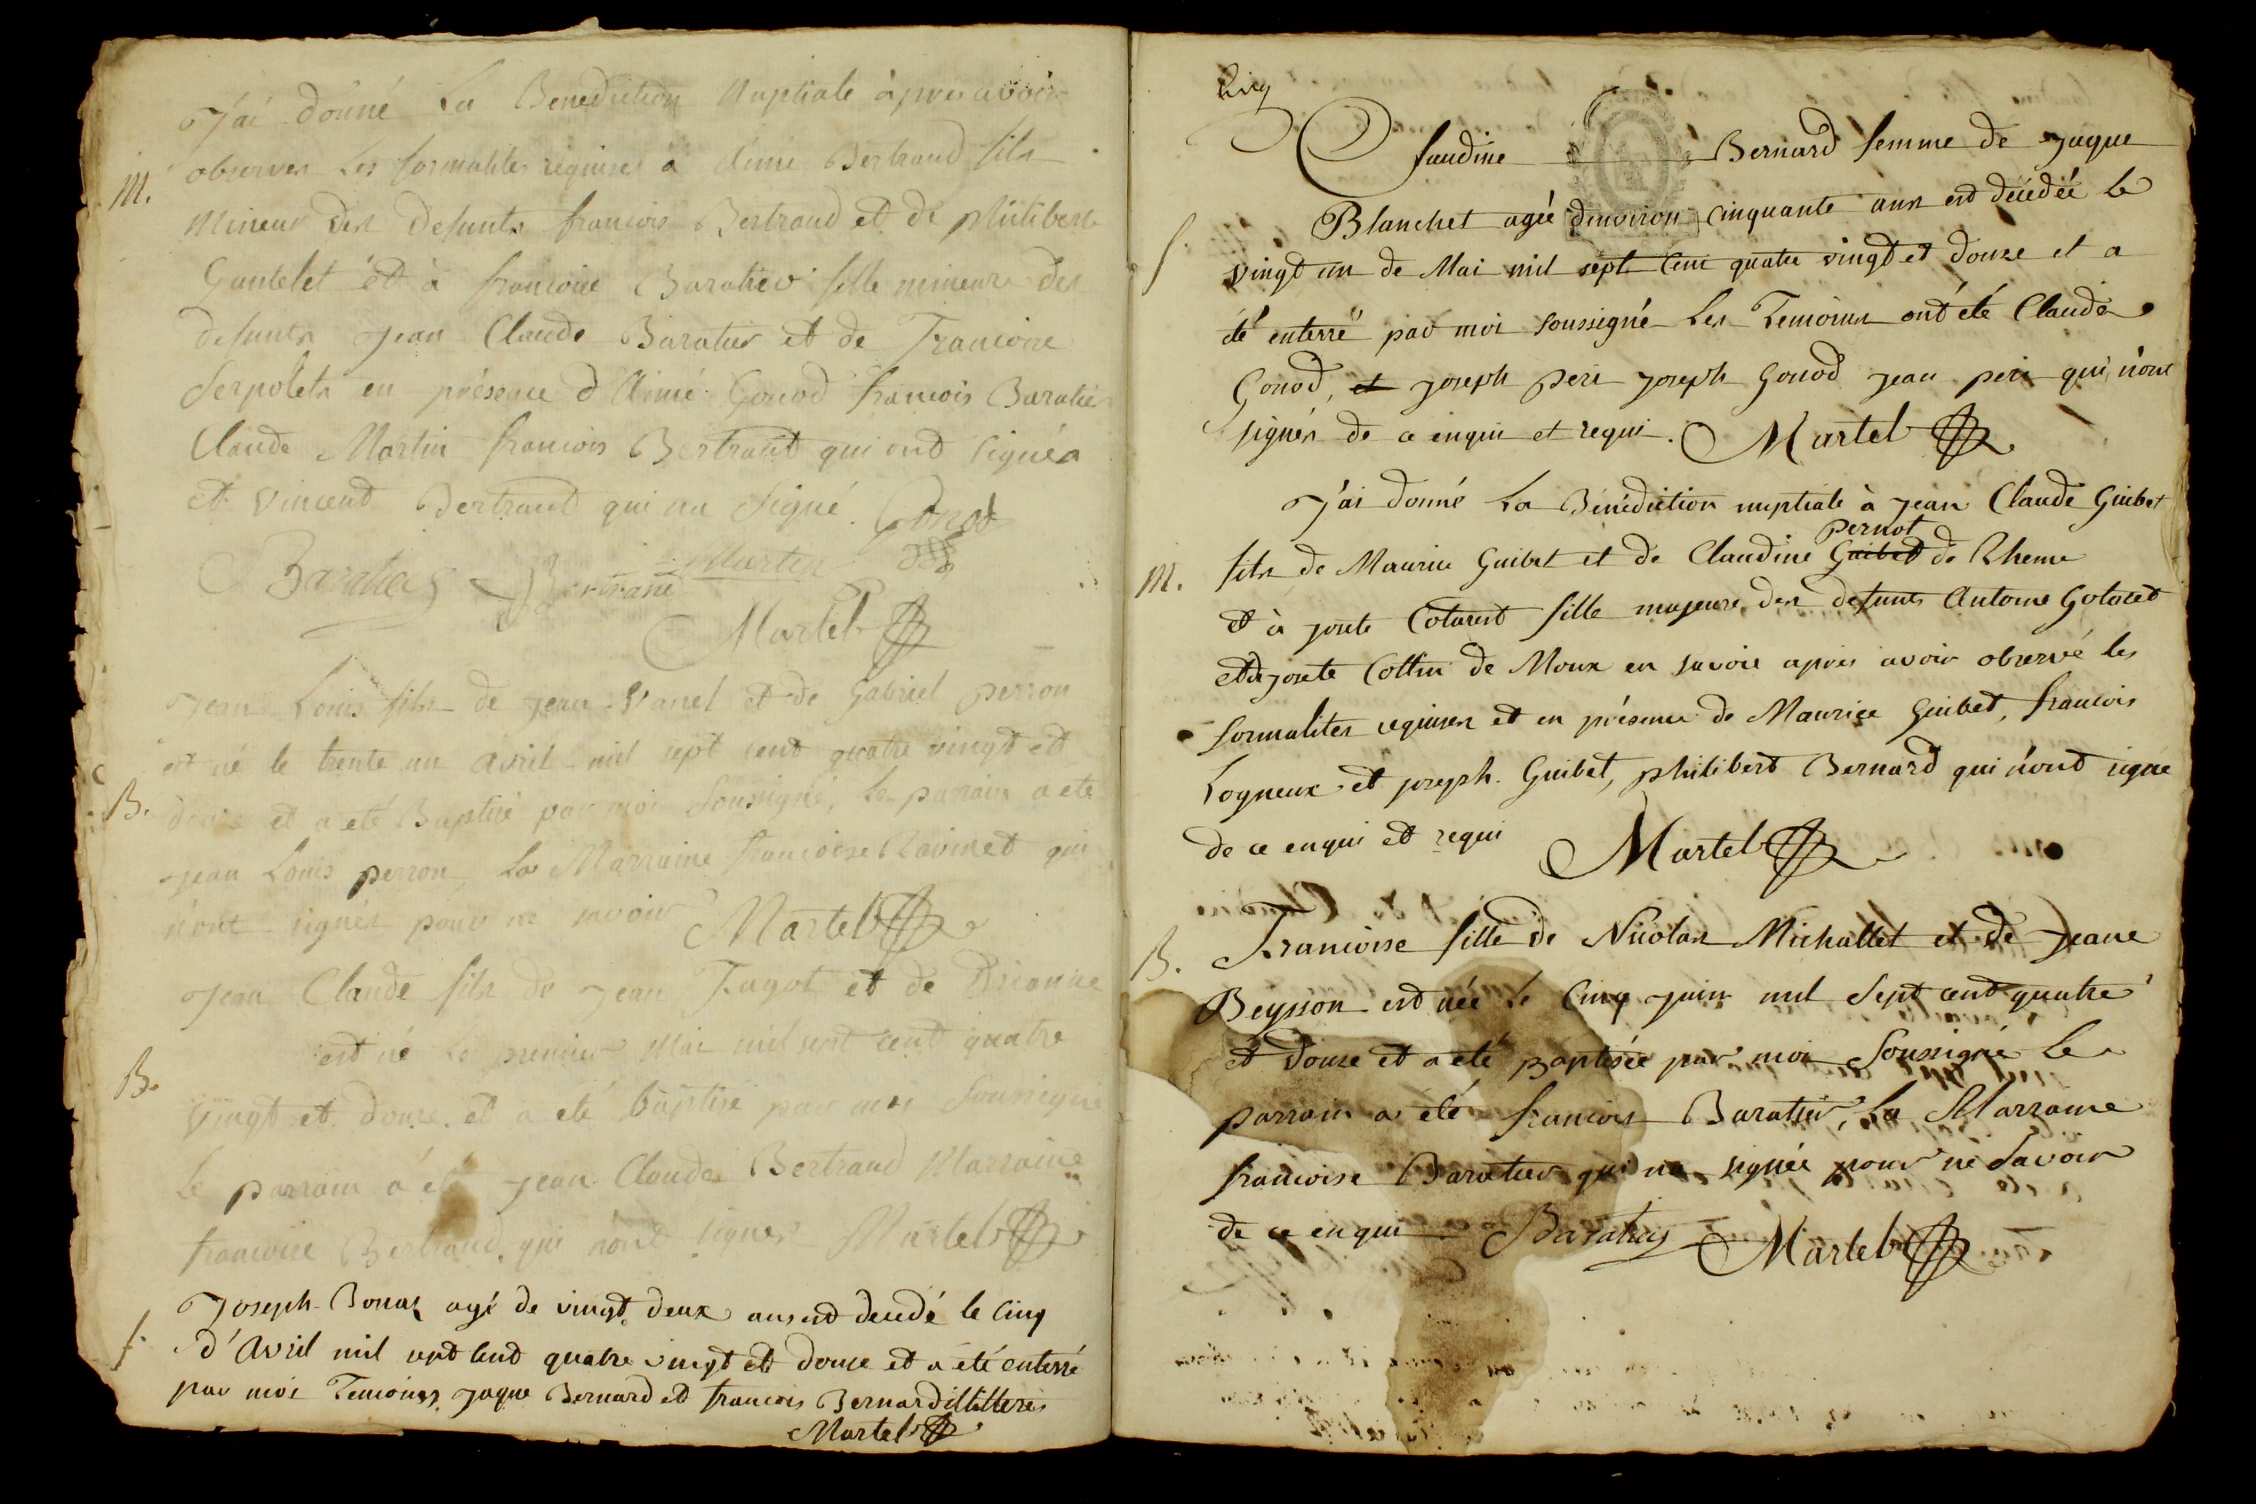 J'ai donné La Benediction Nuptiale àpres avoir
observer Les formalités requises à Aimé Bertrand fils
M.
Mineur des defunts francois Bertrand et de philiberte
Gantelet et à francoise Baratier fille mineure des
defunts Jean Claude Baratier et de Francoise
Serpolets en présence d'Aimé Gonod francois Baratier
Claude Martin francois Bertrand qui ont signés
et vincent Bertrand qui na signé. Gonod
Baratier Bertrand Martin
Martel
Jean Louis fils de jean Vanel et de Gabriel perron
est né le trente un avril mil sept cent quatre vingt et
B.
douze et a eté Baptisé par moi soussigné, Le parrain a ete
jean Louis perron, La Marraine francoise Ravinet qui
n'ont signés pour ne savoir Martel
Jean Claude fils de Jean Jugot et de
est né Le premier Mai mil sept cent quatre
B.
vingt et douze et a eté baptisé par moi Soussigné
Le parrain a été Jean Claude Bertrand Marraine
francoise Bertrand qui n'ont signés Martel
Joseph Bonaz agé de vingt deux ans est decedé le Cinq
f.
d'Avril mil sept Cent quatre vingt et douze et a été enterré
par moi Temoins, jaque Bernard et francois Bernard illitteres
Martel
Cinq
Claudine Bernard femme de Jaque
Blanchet agée d'environ cinquante ans est décédée le
f.
vingt un de Mai mil sept Cent quatre vingt et douze et a
été enterré par moi soussigné Les Temoins ont été Claude
Gonod, et Joseph pere Joseph Gonod Jean pere qui n'ont
signés de ce enquis et requis. Martel
J'ai donné La Bénédiction nuptiale à Jean Claude Guibet
Pernot
fils de Maurice Guibet et de Claudine Guibet de Rheme
M.
et à josete Cotarest fille majeure des defunts Antoine Gotaret
et de josete Collin de Moux en savoie apres avoir observé les
formalites requises et en présence de Maurice Guibet, francois
Logneux et joseph Guibet, philibert Bernard qui n'ont signé
de ce enquis et requis Martel
Francoise fille de Nicolas Michallet et de Jeane
B.
Beysson est née Le Cinq Juin mil Sept cent quatre
et douze et a été Baptisée par moi Soussigné Le
parrain a été francois Baratier, La Marraine
francoise Baratier qui na signée pour ne Savoir
de ce enquis Baratier Martel